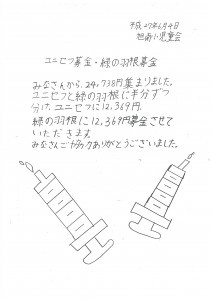 平成27年6月4日
児童会
ユニセフ募金・緑の羽根募金
みなさんから、24,738円集まりました。
ユニセフと緑の羽根に半分ずつ
分け、ユニセフに12,369円
緑の羽根に12,369円募金させて
いただきます
みなさんご協力ありがとうございました。